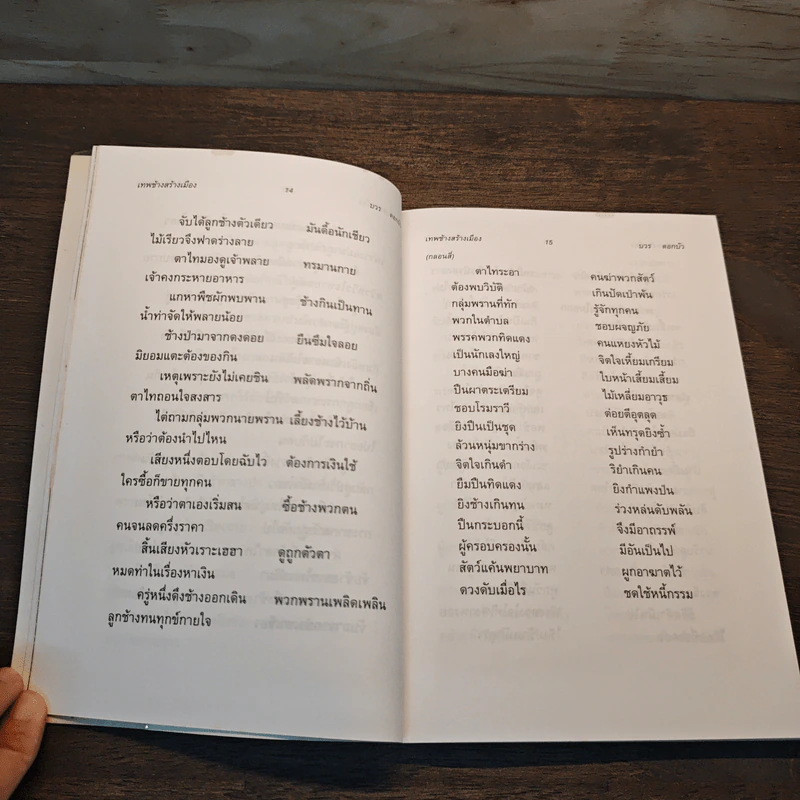 เทพช้างสร้างเมือง 14 บวร ดอกบัว
จับได้ลูกช้างตัวเดียว มันดื้อนักเชียว
ไม้เรียวจึงฟาดร่างลาย
ตาไทมองดูเจ้าพลาย ทรมานกาย
เจ้าคงกระหายอาหาร
แกหาพืชผักพบพาน ช้างกินเป็นทาน
น้ำท่าจัดให้พลายน้อย
ช้างป่ามาจากดงดอย ยืนซึมใจลอย
มิยอมแตะต้องของกิน
เหตุเพราะยังไม่เคยชิน พลัดพรากจากถิ่น
ตาไทถอนใจสงสาร
ไต่ถามกลุ่มพวกนายพราน เลี้ยงช้างไว้บ้าน
หรือว่าต้องนำไปไหน
เสียงหนึ่งตอบโดยฉับไว ต้องการเงินใช้
ใครซื้อก็ขายทุกคน
หรือว่าตาเองเริ่มสน ซื้อช้างพวกตน
คนจนลดครึ่งราคา
สิ้นเสียงหัวเราะเฮฮา ดูถูกตัวตา
หมดท่าในเรื่องหาเงิน
ครู่หนึ่งดึงช้างออกเดิน พวกพรานเพลิดเพลิน
ลูกช้างทนทุกข์กายใจ
เทพช้างสร้างเมือง 15 บวร ดอกบัว
(กลอนสี่)
ตาไทระอา คนฆ่าพวกสัตว์
ต้องพบวิบัติ เกินปัดเป่าพัน
กลุ่มพรานที่ทัก รู้จักทุกคน
พวกในตำบล ชอบผจญภัย
พรรคพวกทิดแดง คนแหยงหัวไม้
เป็นนักเลงใหญ่ จิตใจเหี้ยมเกรียม
บางคนมือฆ่า ใบหน้าเสี้ยมเสี้ยม
ปืนผาตระเตรียม ไม้เหลี่ยมอาวุธ
ชอบโรมราวี ต่อยตีอุตลุด
ยิงปืนเป็นชุด เห็นทรุดยิงซ้ำ
ล้วนหนุ่มขากร่าง รูปร่างกำยำ
จิตใจเกินดำ ริยำเกินคน
ยืมปืนทิดแดง ยิงกำแพงป่น
ยิงช้างเกินทน ร่วงหล่นดับพลัน
ปืนกระบอกนี้ จึงมีอาถรรพ์
ผู้ครอบครองนั้น มีอันเป็นไป
สัตว์แค้นพยาบาท ผูกอาฆาตไว้
ดวงดับเมื่อไร ชดใช้หนี้กรรม